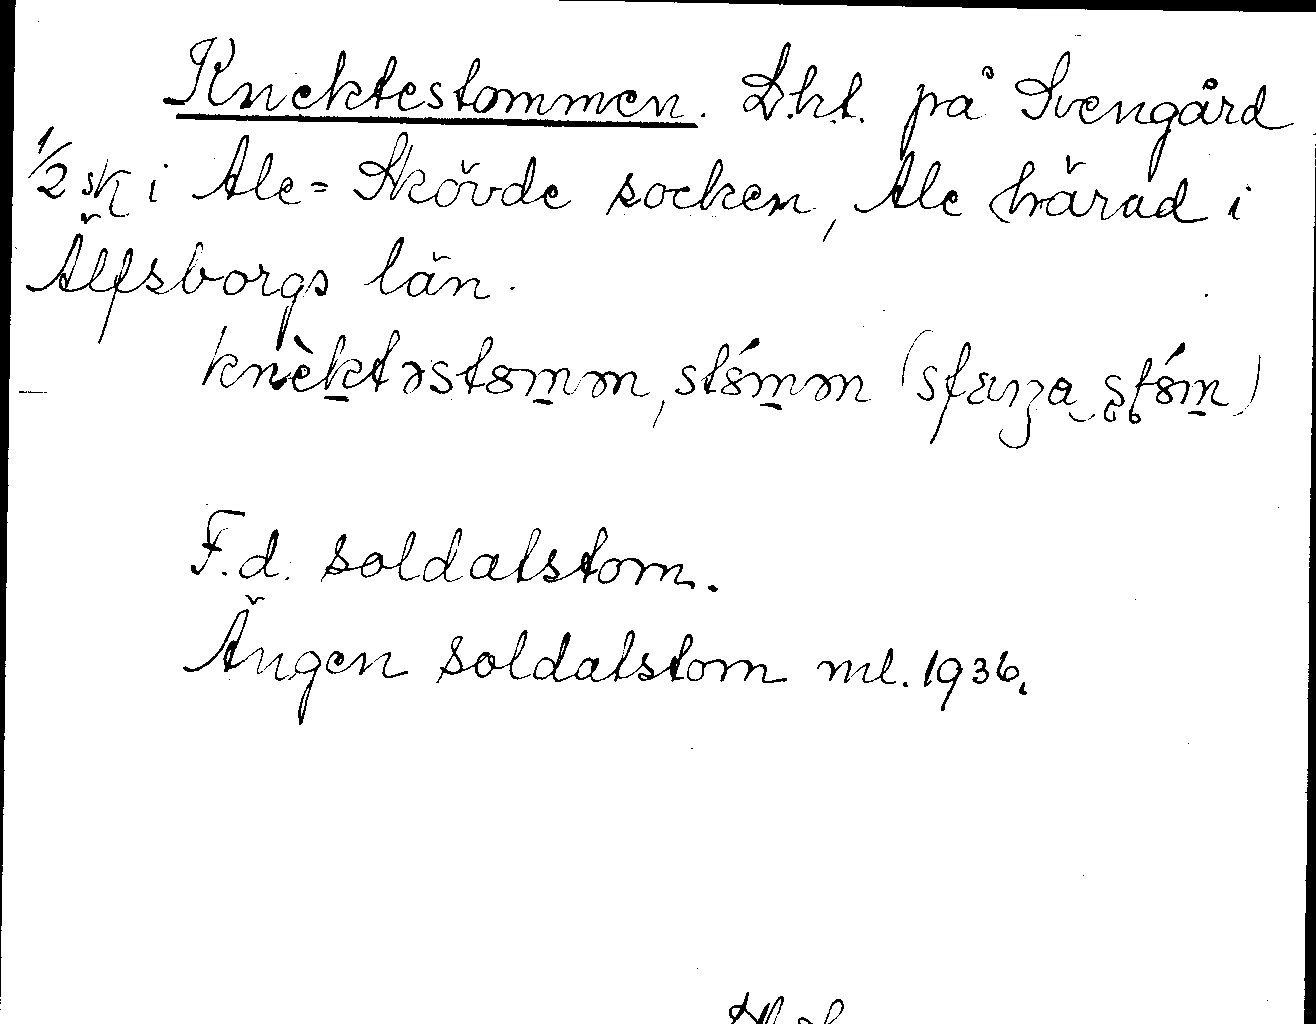 Knektestommen. Lht. på Svengård
1/2 sk i Ale=Skövde socken, Ale härad i
Älfsborgs län.
knèktəstomən, stómən
F.d. soldatstom.
Ängen soldatstom ml. 1936.